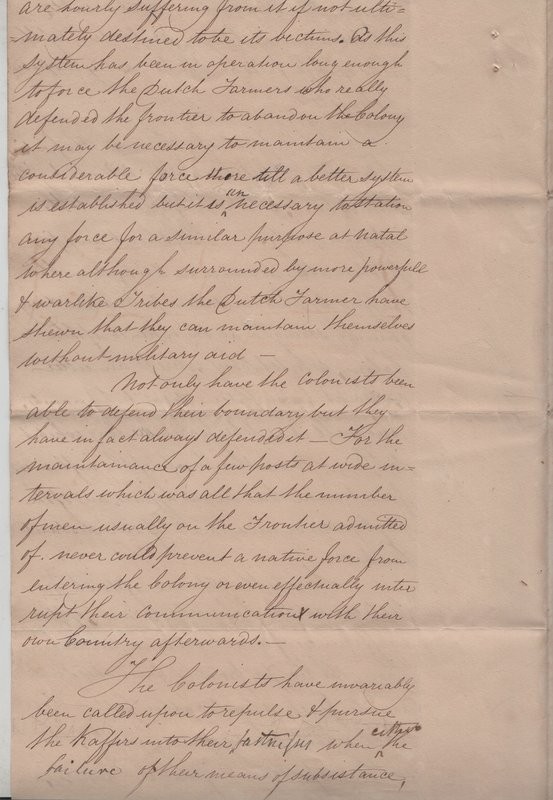 are hourly suffering from it if not ulti=
=mately destined to be its victims. As this
System has been in operation long enough
to force the Dutch Farmers who really
defended the frontier to abandon the Colony
it may be necessary to maintain a
considerable force there till a better system
is established but it is unnecessary to station
any force for a similar purpose at Natal
where although surrounded by more powerfull
& warlike Tribes the Dutch Farmer have
shewn that they can maintain themselves
without military aid —
Not only have the Colonists been
able to defend their boundary but they
have in fact always defended it — For the
maintainance of a few posts at wide in=
tervals which was all that the number
of men usually on the Frontier admitted
of. never could prevent a native force from
entering the Colony or even effectually inter
rupt their communication with their
own Country afterwards. —
The Colonists have invariably
been called upon to repulse & pursue
the Kaffirs into their fastnesses when either the
failure of their means of subsistance,